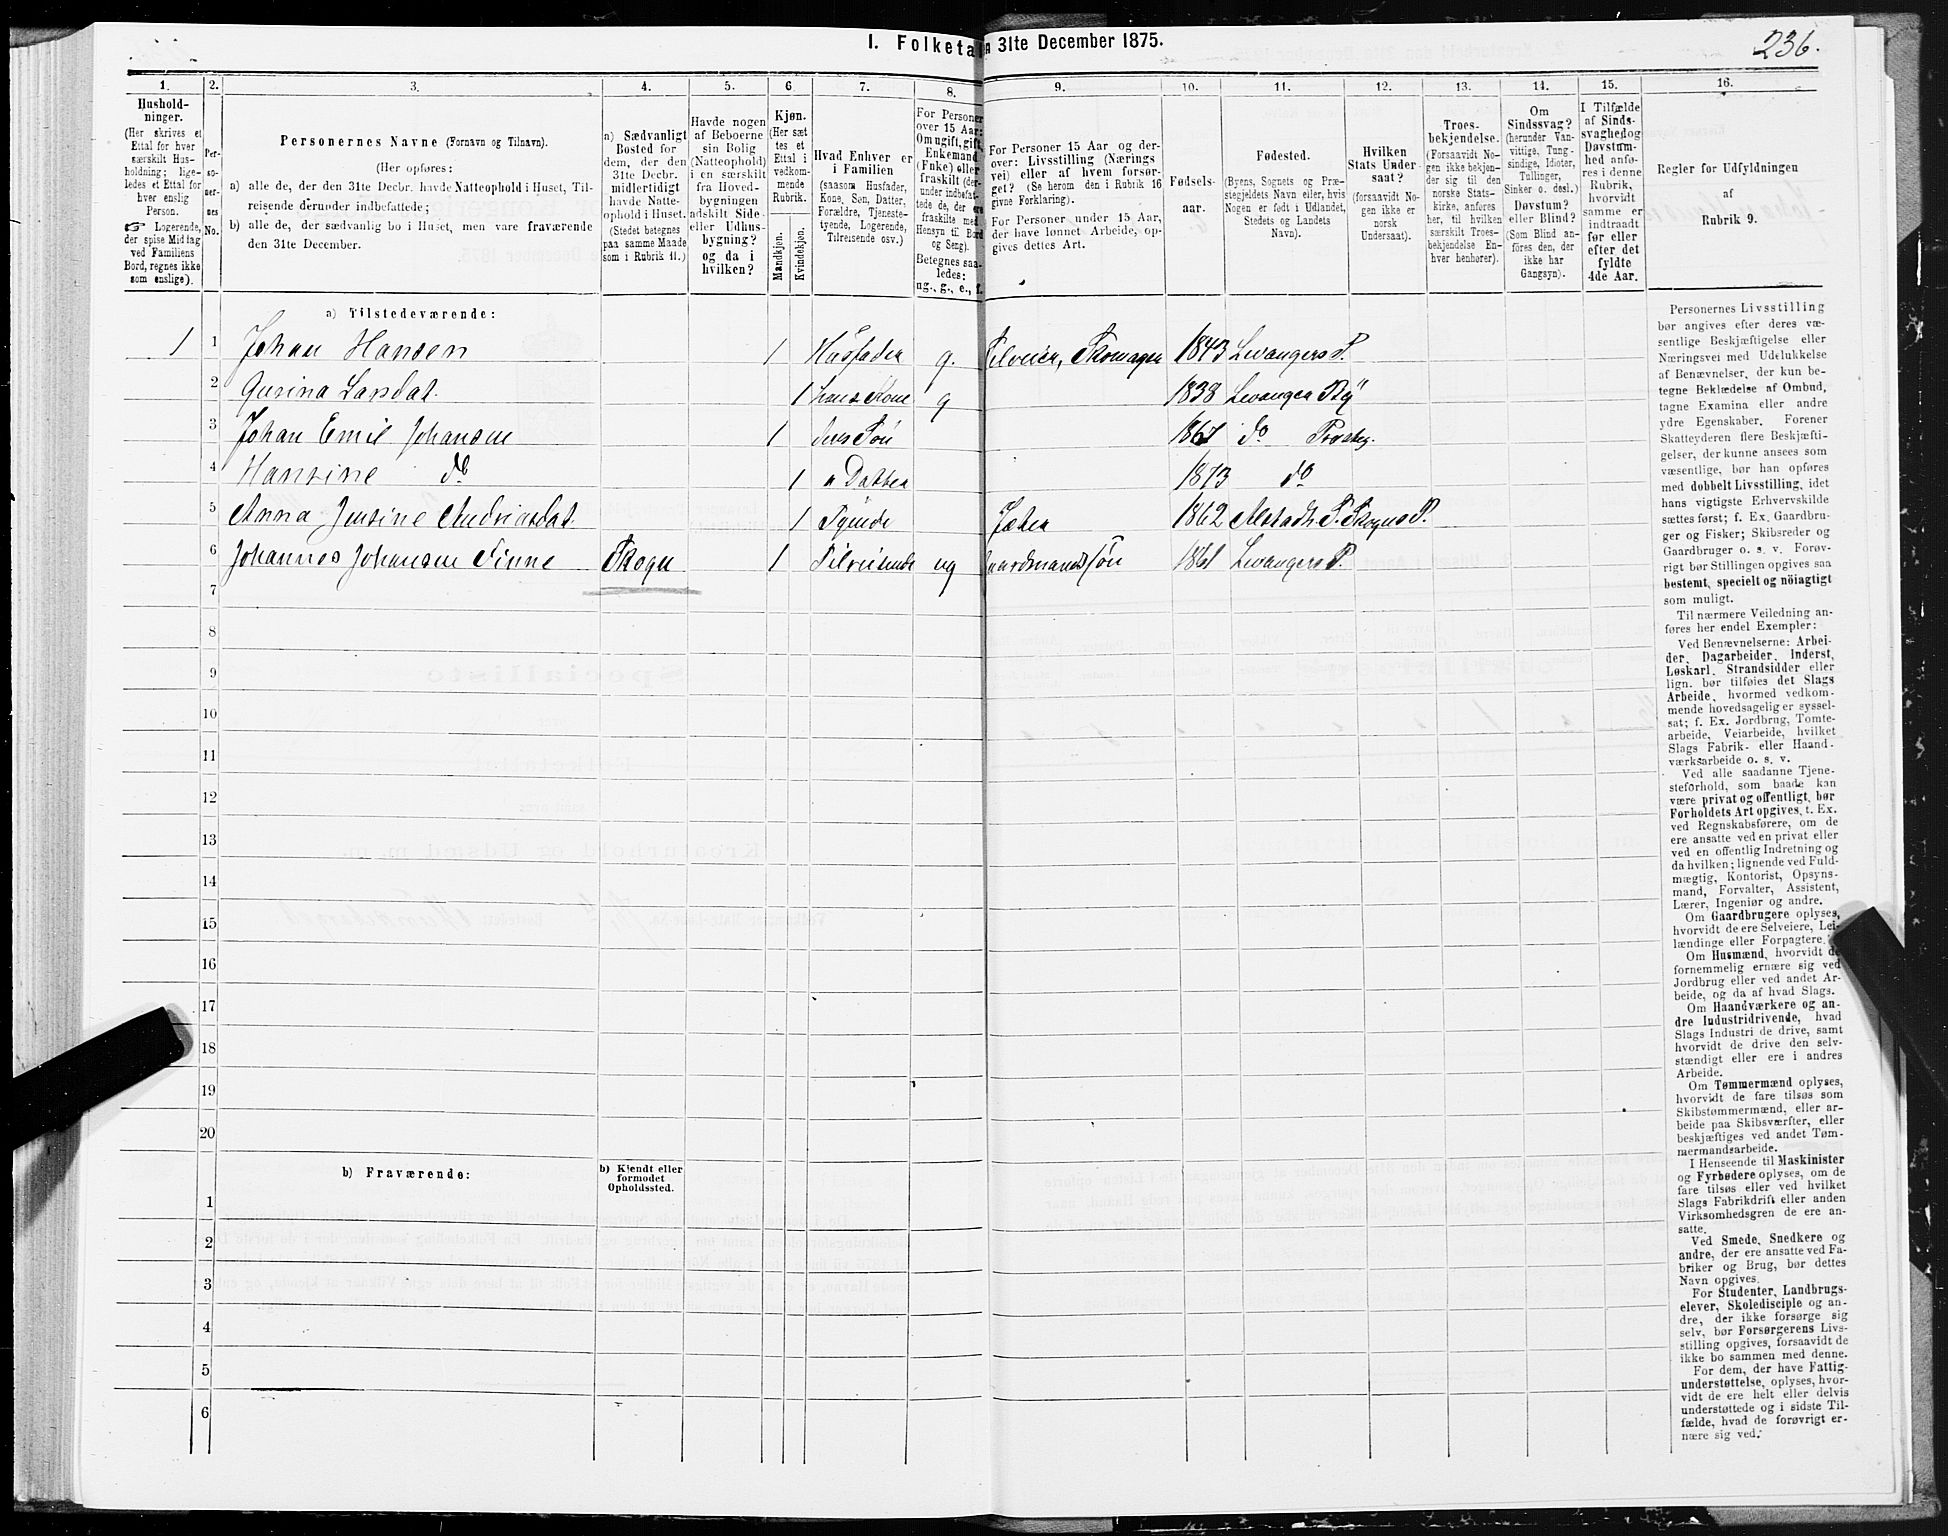 I. Folketa n 31te December 1875.
236.
1. 2. 3. 4. 5. 6. 7. 8. 9. 10. 11. 12. 13. 14. 15. 16.
Hushold-
ninger.
(Her skrives et
Ettal for hver
særskilt Hus-
holdning; lige-
ledes et Ettal for
hver enslig
Person.
☞ Logerende,
der spise Middag
ved Familiens
Bord, regnes ikke
som enslige).
Per-
so-
ner-
nes
No.
Personernes Navne (Fornavn og Tilnavn).
(Her opføres:
a) alle de, der den 31te Decbr. havde Natteophold i Huset, Til-
reisende derunder indbefattede;
b) alle de, der sædvanlig bo i Huset, men vare fraværende
den 31te December.
a) Sædvanligt
Bosted for
dem, der den
31te Decbr.
midlertidigt
havde Natte-
ophold i Huset.
(Stedet betegnes
paa samme Maade
som i Rubrik 11.)
Havde nogen
af Beboerne
sin Bolig
(Natteophold)
i en særskilt
fra Hoved-
bygningen
adskilt Side-
eller Udhus-
bygning?
og da i
hvilken?
Kjøn.
(Her sæt-
tes et
Ettal i
vedkom-
mende
Rubrik.
Mandkjøn.
Kvindekjøn.
Hvad Enhver er
i Familien
(saasom Husfader,
Kone, Søn, Datter,
Forældre, Tjeneste-
tyende, Logerende,
Tilreisende osv.)
For Personer
over 15 Aar:
Om ugift, gift,
Enkemand
(Enke) eller
fraskilt (der-
under indbefat-
tede de, der ere
fraskilte med
Hensyn til Bord
og Seng).
Betegnes saa-
ledes:
ug., g., e., f.
For Personer 15 Aar og der-
over: Livsstilling (Nærings
vei) eller af hvem forsør-
get? (Se herom den i Rubrik 16
givne Forklaring).
For Personer under 15 Aar,
der have lønnet Arbeide, op-
gives dettes Art.
Fødsels-
aar.
Fødested.
(Byens, Sognets og Præ-
stegjeldets Navn eller, hvis
Nogen er født i Udlandet,
Stedets og Landets
Navn).
Hvilken
Stats Under-
saat?
(forsaavidt No-
gen ikke er
norsk
Undersaat).
Troes-
bekjendelse.
(Forsaavidt No-
gen ikke bekjen-
der sig til den
norske Stats-
kirke, anføres
her, til hvilken
særskilt Troes-
bekjendelse En-
hver henhører).
Om
Sindssvag?
(herunder Van-
vittige, Tung-
sindige, Idioter,
Tullinger,
Sinker o. desl.)
Døvstum?
eller Blind?
(Som Blind an-
føres den, der
ikke har
Gangsyn).
I Tilfælde
af Sinds-
svaghed og
Døvstum-
hed anfø-
res i denne
Rubrik,
hvorvidt
samme er
indtraadt
før eller
efter det
fyldte
4de Aar.
Regler for Udfyldningen
af
Rubrik 9.
a) Tilstedeværende:
1 1 Johan Hansen 1 Husfader g. Selveier, Skomager 1843 Levangers P.
2 Gurina Larsdat. 1 hans Kone g 1838 Levanger By
3 Johan Emil Johansen 1 deres Søn 1867 do
4 Hansine do 1 " Datter 1873 do
5 Anna Jensine Andriasdat. 1 Tyende 1862 Alstadh. S. Skogns P.
6 Johannes Johansen Finne Skogn 1 Tilreisende ug Gaardmandssøn 1861 Levangers P.
7
8
9
10
11
12
13
14
15
16
17
18
19
20
b) Fraværende:
b) Kjendt eller
formodet
Opholdssted.
1
2
3
4
5
6
Personernes Livsstilling
bør angives efter deres væ-
sentlige Beskjæftigelse eller
Næringsvei med Udelukkelse
af Benævnelser, der kun be-
tegne Beklædelse af Ombud,
tagne Examina eller andre
ydre Egenskaber. Forener
Skatteyderen flere Beskjæfti-
gelser, der kunne ansees som
væsentlige, bør han opføres
med dobbelt Livsstilling, idet
hans vigtigste Erhvervskilde
sættes først; f. Ex. Gaardbru-
ger og Fisker; Skibsreder og
Gaardbruger o. s. v. Forøv-
rigt bør Stillingen opgives saa
bestemt, specielt og nöiagtigt
som muligt.
Til nærmere Veiledning an-
føres her endel Exempler:
Ved Benævnelserne: Arbei-
der, Dagarbeider, Inderst,
Løskarl, Strandsidder eller
lign. bør tilføies det Slags
Arbeide, hvormed vedkom-
mende hovedsagelig er syssel-
sat; f. Ex. Jordbrug, Tomte-
arbeide, Veiarbeide, hvilket
Slags Fabrik- eller Haand-
værksarbeide o. s. v.
Ved alle saadanne Tjene-
steforhold, som baade kan
være privat og offentligt, bør
Forholdets Art opgives, t. Ex.
ved Regnskabsførere, om de
ere ansatte ved en privat eller
ved en offentlig Indretning og
da hvilken; lignende ved Fuld-
mægtig, Kontorist, Opsyns-
mand, Forvalter, Assistent,
Lærer, Ingeniør og andre.
Om Gaardbrugere oplyses,
hvorvidt de ere Selveiere, Lei-
lændinge eller Forpagtere.
Om Husmænd, hvorvidt de
fornemmelig ernære sig ved
Jordbrug eller ved andet Ar-
beide, og da af hvad Slags.
Om Haandværkere og an-
dre Industridrivende, hvad
Slags Industri de drive, samt
hvorvidt de drive den selv-
stændigt eller ere i andres
Arbeide.
Om Tømmermænd oplyses,
hvorvidt de fare tilsøs som
Skibstømmermænd, eller ar-
beide paa Skibsværfter, eller
beskjæftiges ved andet Tøm-
mermandsarbeide.
I Henseende til Maskinister
og Fyrbødere oplyses, om de
fare tilsøs eller ved hvilket
Slags Fabrikdrift eller anden
Virksomhedsgren de ere an-
satte.
Ved Smede, Snedkere og
andre, der ere ansatte ved Fa-
briker og Brug, bør dettes
Navn opgives.
For Studenter, Landbrugs-
elever, Skoledisciple og an-
dre, der ikke forsørge sig
selv, bør Forsørgerens Livs-
stilling opgives, forsaavidt de
ikke bo sammen med denne.
For dem, der have Fattig-
understøttelse, oplyses, hvor-
vidt de ere helt eller delvis
understøttede og i sidste Til-
fælde, hvad de forøvrigt er-
nære sig ved.